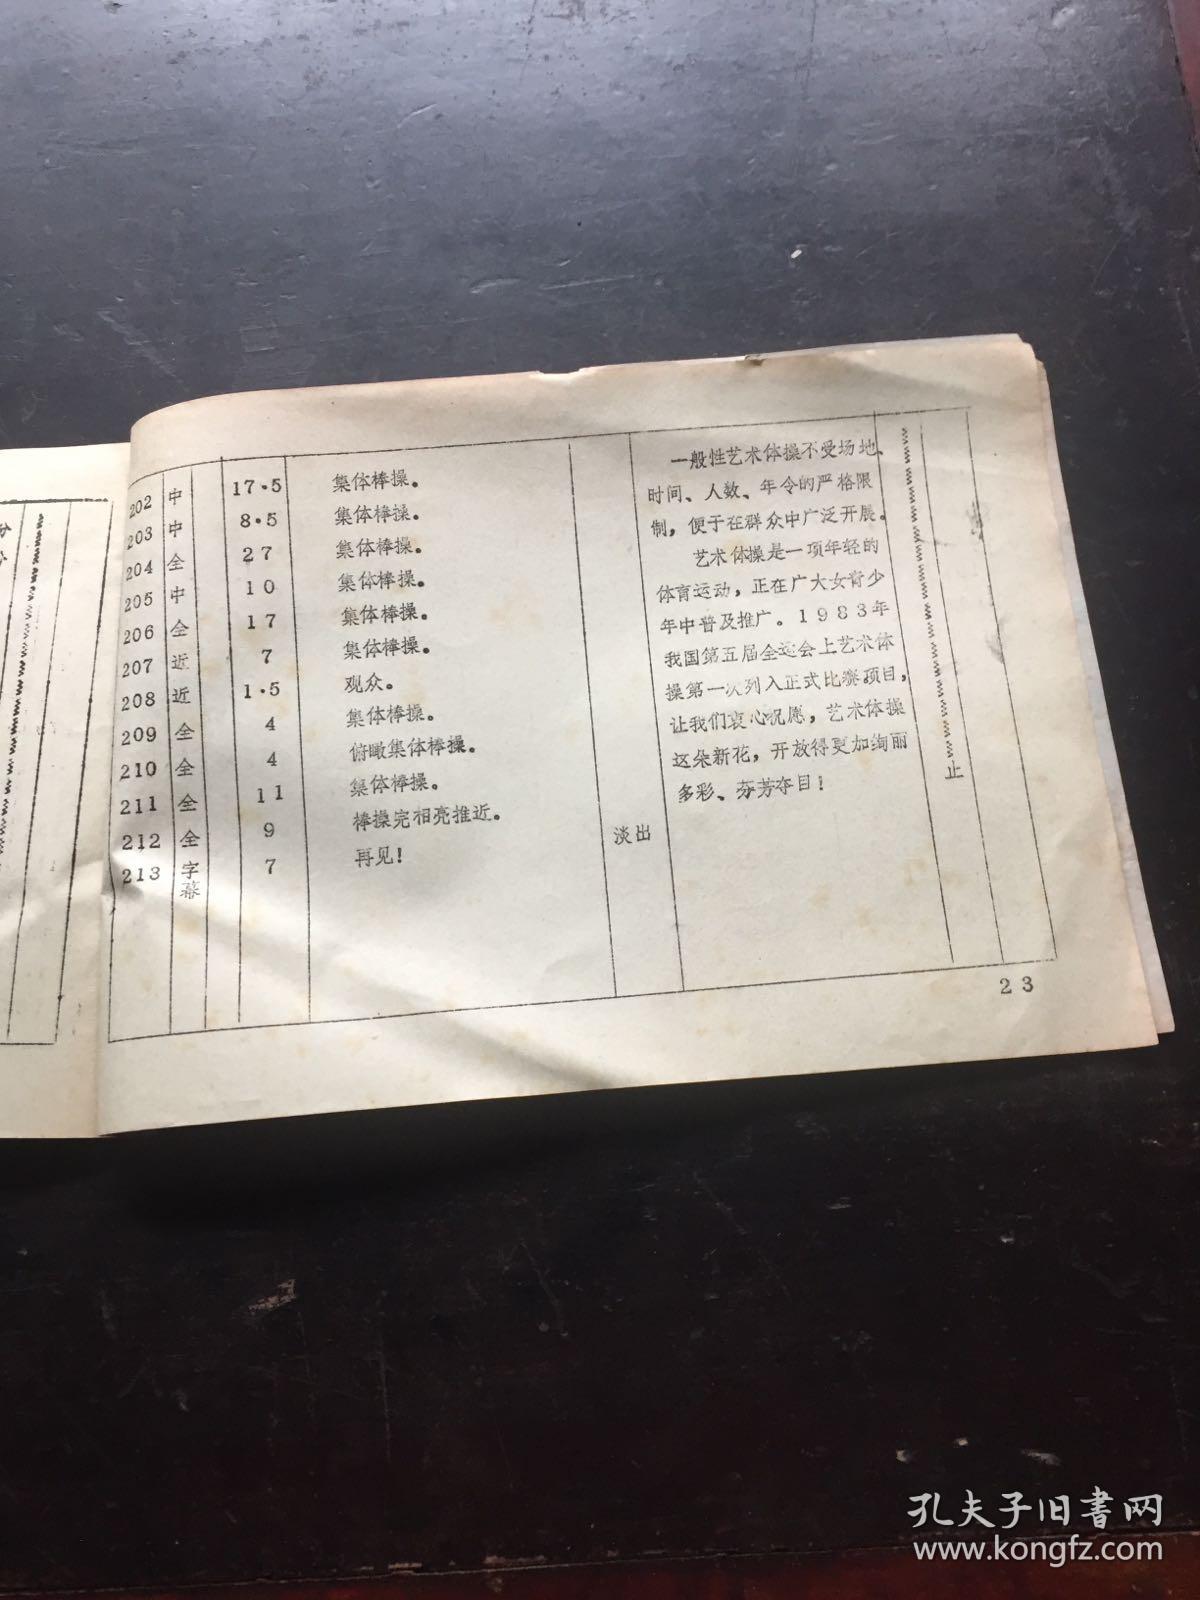 202 中 17.5 集体棒操。
203 中 8.5 集体棒操。
204 全 27 集体棒操。
205 中 10 集体棒操。
206 全 17 集体棒操。
207 近 7 集体棒操。
208 近 1.5 观众。
209 全 4 集体棒操。
210 全 4 俯瞰集体棒操。
211 全 11 集体棒操。
212 全 9 棒操完相亮推近。
213 字幕 7 再见！
淡出
一般性艺术体操不受场地、
时间、人数、年令的严格限
制，便于在群众中广泛开展。
艺术体操是一项年轻的
体育运动，正在广大女青少
年中普及推广。1983年
我国第五届全运会上艺术体
操第一次列入正式比赛项目，
让我们衷心祝愿，艺术体操
这朵新花，开放得更加绚丽
多彩、芬芳夺目！
止
23
孔夫子旧书网
www.kongfz.com